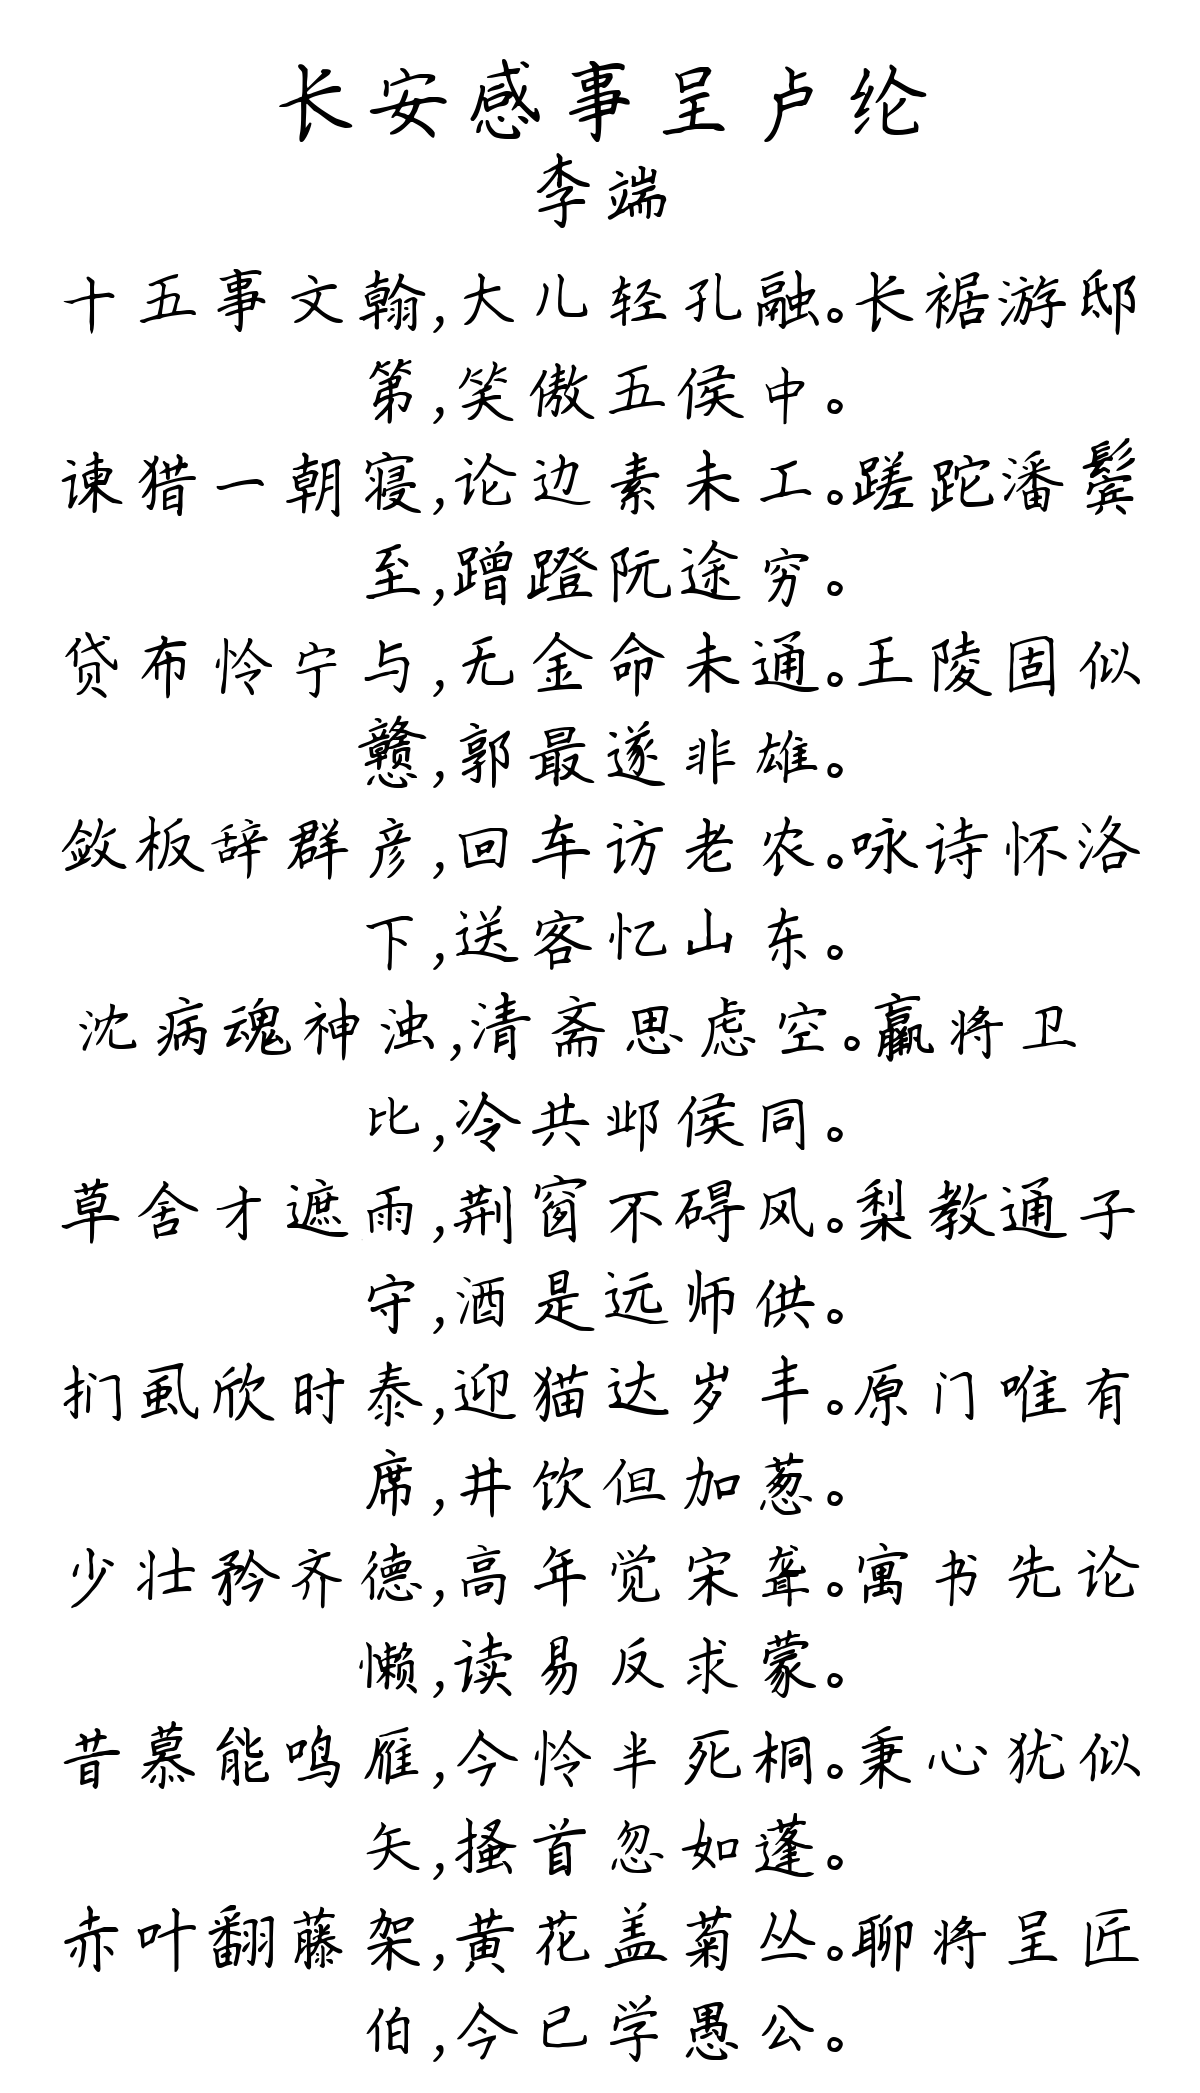 长安感事呈卢纶
李端
十五事文翰,大儿轻孔融。长裾游邸
第,笑傲五侯中。
谏猎一朝寝,论边素未工。蹉跎潘鬓
至,蹭蹬阮途穷。
贷布怜宁与,无金命未通。王陵固似
戆,郭最遂非雄。
敛板辞群彦,回车访老农。咏诗怀洛
下,送客忆山东。
沈病魂神浊,清斋思虑空。羸将卫
比,冷共邺侯同。
草舍才遮雨,荆窗不碍风。梨教通子
守,酒是远师供。
扪虱欣时泰,迎猫达岁丰。原门唯有
席,井饮但加葱。
少壮矜齐德,高年觉宋聋。寓书先论
懒,读易反求蒙。
昔慕能鸣雁,今怜半死桐。秉心犹似
矢,搔首忽如蓬。
赤叶翻藤架,黄花盖菊丛。聊将呈匠
伯,今已学愚公。